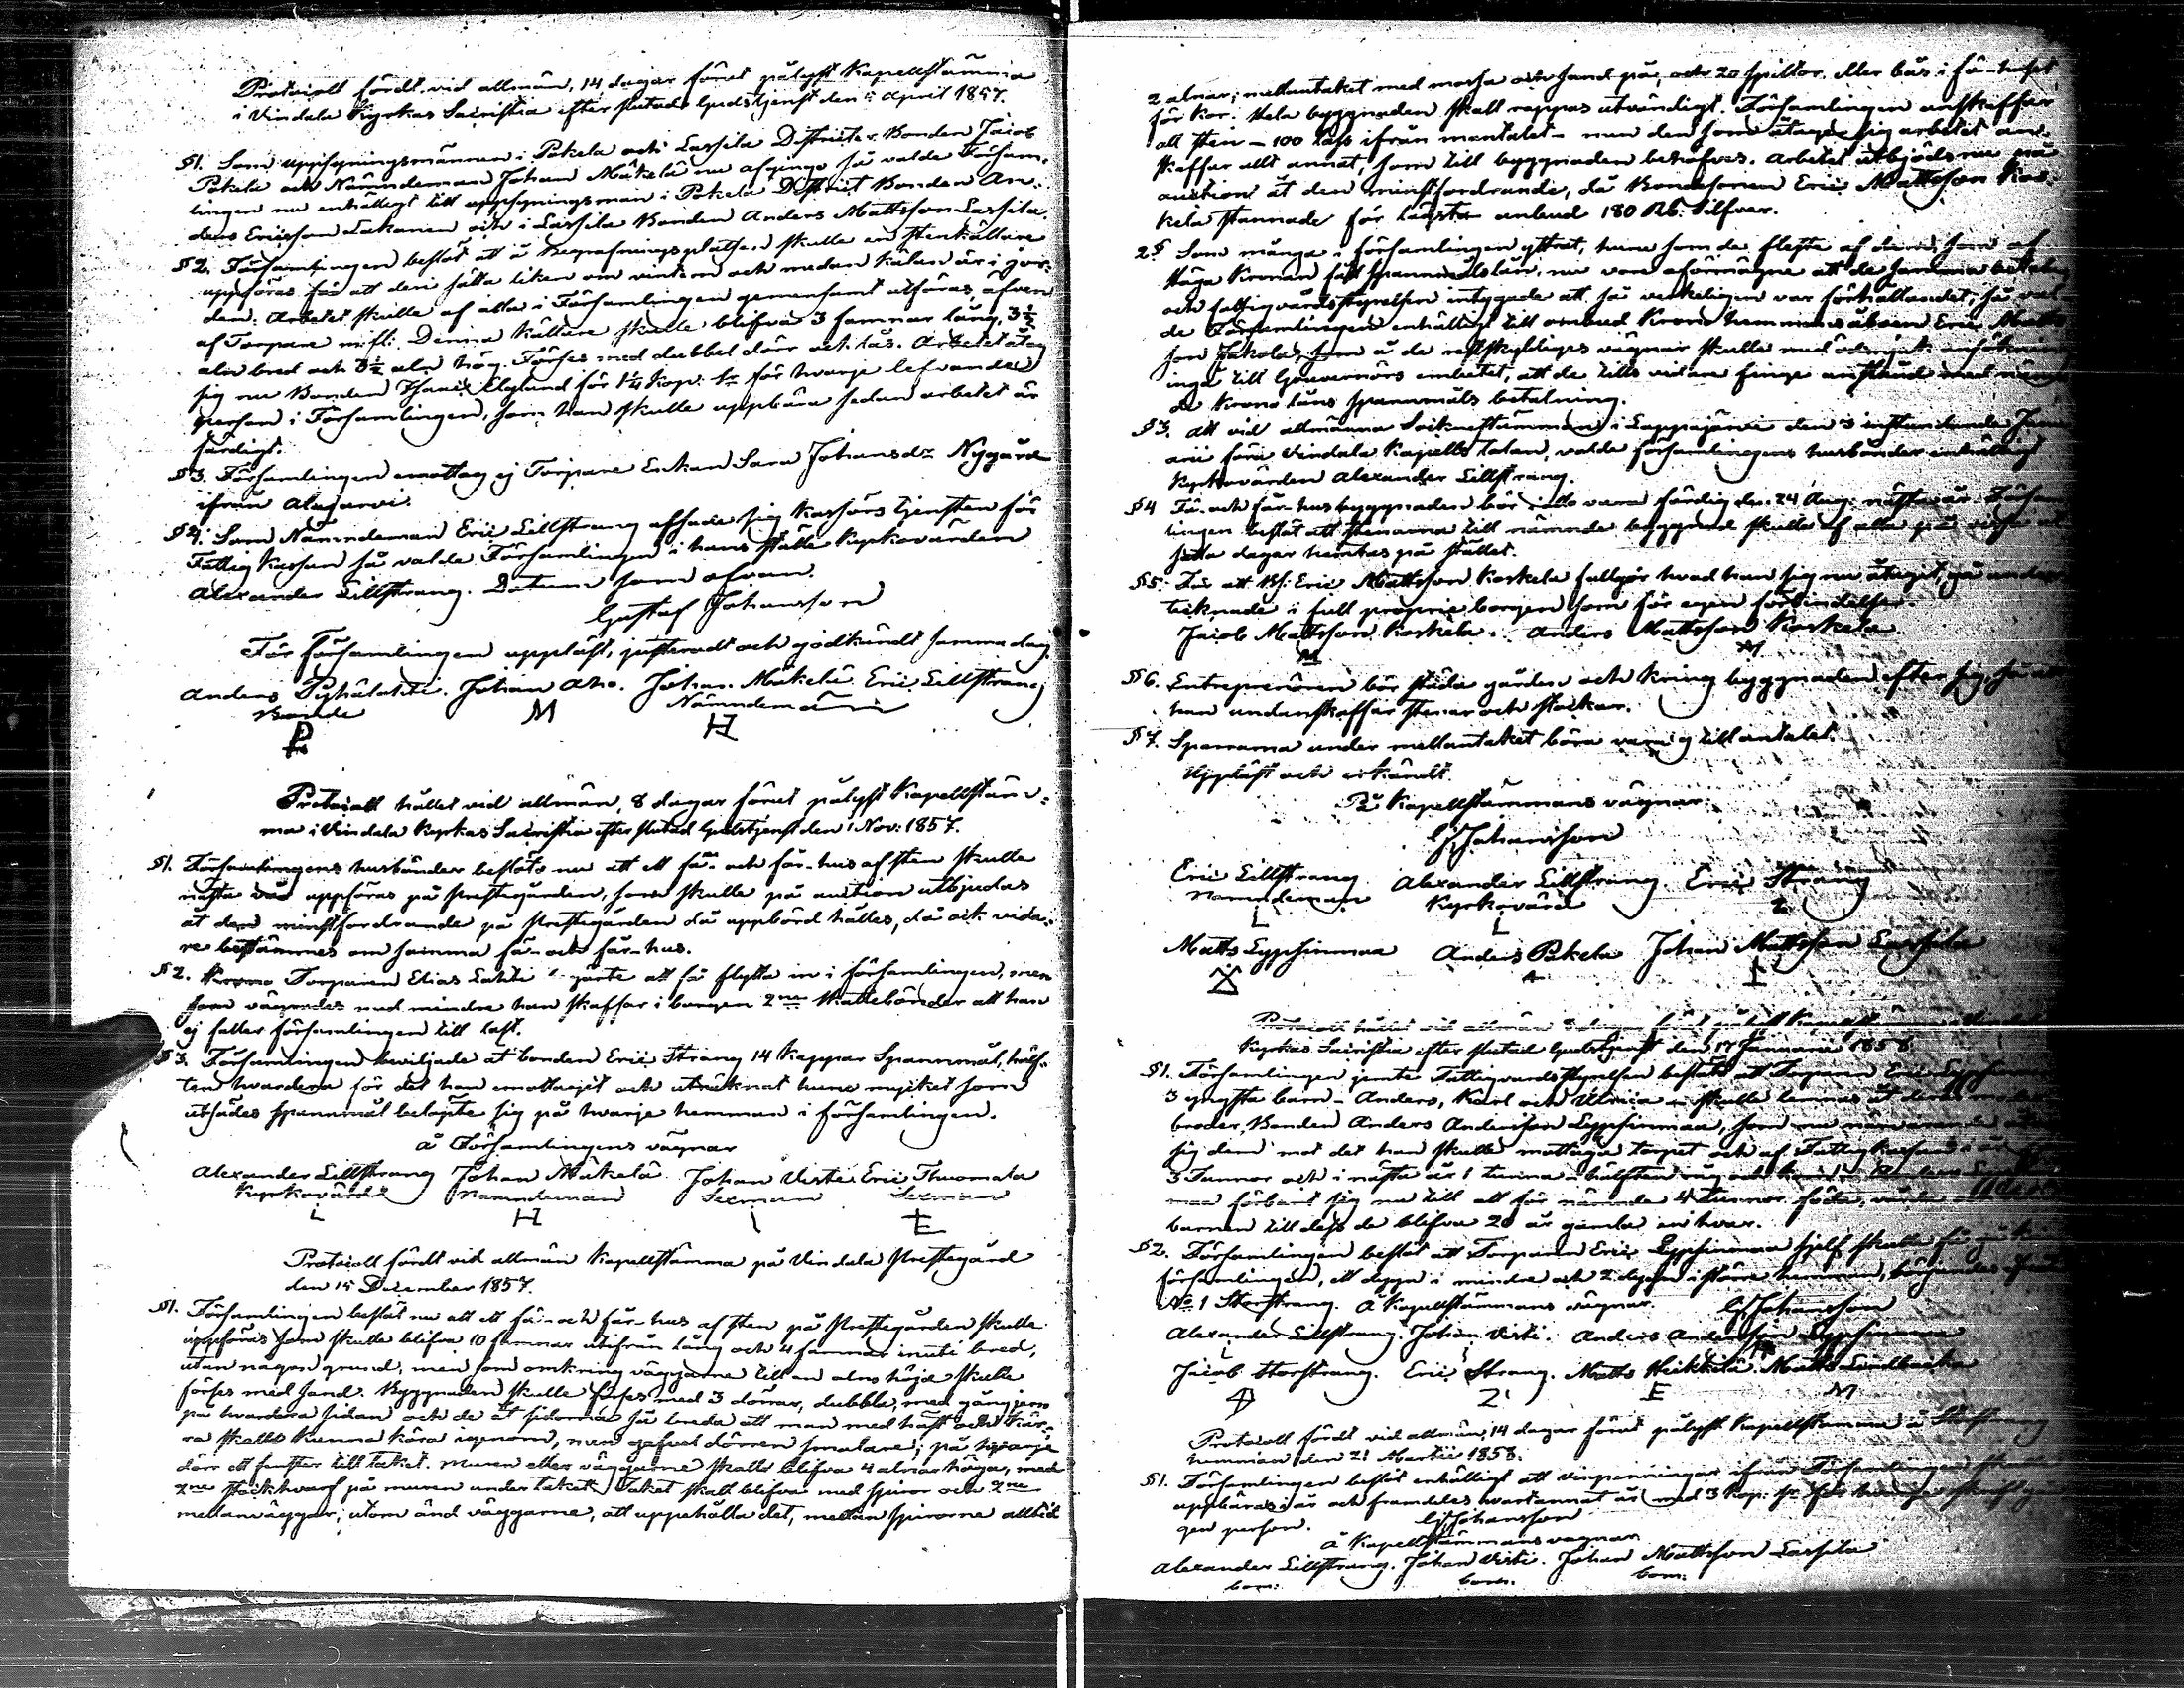 Protocoll fördt vid allmän, 14 dagar förut pålyst Kapellstämma
i Vindala Kyrkas Sacristia efter slutad Gudstjenst den April 1857.
§1. Som uppsyningsmännen i Pokela och Lassila Districter Bonden Jacob
Pokela och Nämndeman Johan Mäkelä nu afgingo så valde Försam-
lingen nu enhälligt till uppsyningsman i Pokela District Bonden An-
ders Ericsson Lakanen och i Lassila Bonden Anders Mattsson Lassila.
§2. Församlingen beslöt att å Begrafningsplatsen skulle en stenkällare
uppföras för att deri sätta liken om vintern och medan kälan är i jor-
den. Arbetet skulle af alla i Församlingen gemensamt utföras, äfven
af Torpare m.fl. Denna källare skulle blifva 3 famnar lång, 3½
aln bred och 3½ aln hög. Förses med dubbel dörr och lås. Arbetet åtog
sig nu Bonden Elglund för 1¼ Kop. Sr för hvarje lefvande
person i Församlingen, som han skulle uppbära sedan arbetet är
färdigt.
§3. Församlingen emottog ej Torpare Enkan Sara Johansdr Nygård
ifrån Alajärvi.
§4. Som Nämndeman Eric Lillstrang afsade sig Kassörs tjensten för
Fattig Kassan så valde Församlingen i hans ställe Kyrkovärden
Alexander Lillstrang. Datum som ofvan.
Gustaf Johansson
För Församlingen uppläst, justeradt och godkändt samma dag.
Anders Pyhälahti. Johan Aho. Johan Mäkelä Eric Lillstrang
Bonde Nämndemän
P M H
Protocoll hållet vid allmän, 8 dagar förut pålyst Kapellstäm-
ma i Vindala Kyrkas Sacristia efter slutad Gudstjenst den 1 Nov: 1857.
§1. Församlingens husbönder beslöto nu att ett fä- och får-hus af sten skulle
nästa vår uppföras på Prestegården, som skulle på auction utbjudas
åt den minstfordrande på Prestegården då uppbörd hålles, då ock vida-
re bestämmes om samma fä- och får-hus.
§2. Krono Torparen Elias Lahti att få flytta in i församlingen, men
som vägrades med mindre han skaffar i borgen 2ne Skattebönder att han
ej faller församlingen till last.
§3. Församlingen beviljade åt bonden Eric Strang 14 Kappar Spannmål, hälf-
ten hvardera för det han emottagit och uträknat huru mycket som
utsädes spannmål belöpte sig på hvarje hemman i församlingen.
å Församlingens vägnar
Alexander Lillstrang Johan Mäkelä Johan Visti Eric Thuomala
Kyrkovärd Nämndeman Sexman Sexman
L H E
Protocoll fördt vid allmän Kapellstämma på Vindala Prestegård
den 15 December 1857.
§1. Församlingen beslöt nu att ett fä- och får-hus af sten på Prestegården skulle
uppföras som skulle blifva 10 famnar utifrån lång och 4 famnar inuti bred,
utan någon grund, men som omkring väggarne till en alns höjd skulle
förses med sand. Byggnaden skulle förses med 3 dörrar, dubbla, med gångjern
på hvardera sidan och de åt sidorna så breda att man med häst och kär-
ra skall kunna köra igenom, men gafvel dörren smalare; på hvarje
dörr ett fenster till taket. Muren eller väggarne skall blifva 4 alnar höga, med
2ne stockhvarf på muren under taket. Taket skall blifva med spiror och 2ne
mellanväggar, utom änd väggarne, att uppehålla det, mellan spirorne alltid
2 alnar; mellantaket med mossa och sand på, och 20 spiltor. Eller bås i fä-huset
för kor. Hela byggnaden skall rappas utvändigt. Församlingen anskaffar
all sten - 100 lass ifrån mantalet - men den som åtager sig arbetet an-
skaffar allt annat, som till byggnaden behöfves. Arbetet utbjöds nu på
auction åt den minstfordrande, då Bondesonen Eric Mattsson Kos-
kela stannade för lägsta anbud 180 Rb: Silfver.
2§ Som många i församlingen yttrat, huru som de flesta af dem, som af
Höga Kronan fått spannmålslån, nu voro oförmögne att de samma betala
och fattigvårdsstyrelsen intygade att så verkeligen var förhållandet, så val-
de Församlingen enhälligt till ombud Krono hemmans åboen Eric Matts
son Jakola, som å de nödskyldigas vägnar skulle med ödmjuk ansökning
ingå till Gouvernörs embetet, att de tills vidare finge anstånd med
Krono låns spannmåls betalning.
§3. Att vid allmänna Sockenstämman i Lappajärvi den 3 instundande Janu-
arii föra Vindala Kapells talan, valde församlingens husbönder enhälligt
Kyrkovärden Alexander Lillstrang.
§4 Fä- och får-hus byggnaden bör vara färdig den 24 Aug. nästa år. Försam-
lingen beslöt att stenarna till nämnde byggnad skulle af alla på vissa
dagar hemtas på stället.
§5. För att Bs: Eric Mattsson Koskela fullgör hvad han sig nu åtagit, gå under-
tecknade i full proprie borgen som för egen förbindelse.
Jacob Mattsson Koskela. Anders Mattsson Koskela
M M
§6. Entreprenören bör städa gården och kring byggnaden efter sig,
han undanskaffar stenar och stockar.
§7. Sparrarna under mellantaket böra vara 9 till antalet.
Uppläst och erkändt.
På Kapellstämmans vägnar
G Johansson
Eric Lillstrang Alexander Lillstrang Eric Strang
Nämndeman Kyrkovärd
L L 2
Matts Lyphinmaa Anders Pokela Johan Mattsson Lassila
Protocoll hållet vid allmän 8 dagar förut Kapellstämma i Vindala
Kyrkas Sacristia efter slutad Gudstjenst den 17 Januarii 1858.
§1. Församlingen jemte Fattigvårdsstyrelsen beslöto att Torparen Eric
3 yngsta barn - Anders, Karl och Ulrica - skulle lemnas åt deras
broder, Bonden Anders Andersson Lyphinmaa, som nu närvarande
sig dem mot det han skulle mottaga torpet och af Fattig Kassan i år
3 Tunnor och i nästa år 1 tunna hälften råg och korn.
förband sig nu till att för nämnde 4 tunnor föda, vårda
barnen till dess de blifva 20 år gamla en hvar.
§2. Församlingen beslöt att Torparen Eric Lyphinmaa sjelf skulle få gå i
församlingen, ett dygn i mindre och 2 dygn i större hemman,
No 1 Storstrang. Å Kapellstämmans vägnar. G Johansson
Alexander Lillstrang. Johan Visti. Anders Andersson Lyphinmaa
Jacob Storstrang. Eric Strang. Matts Heikkilä. Matts Lindbacka
2 E M
Protocoll fördt vid allmän, 14 dagar förut pålyst Kapellstämma å Storstrang
hemman den 21 Martii 1858.
§1. Församlingen beslöt enhälligt att vinpenningar ifrån Församlingen
uppbäras i år och framdeles hvartannat år med 3 kop: Sr för hvarje
gen person. G Johansson
å Kapellstämmans vägnar
Alexander Lillstrang. Johan Visti. Johan Mattsson Lassila
bom: bom: bom: